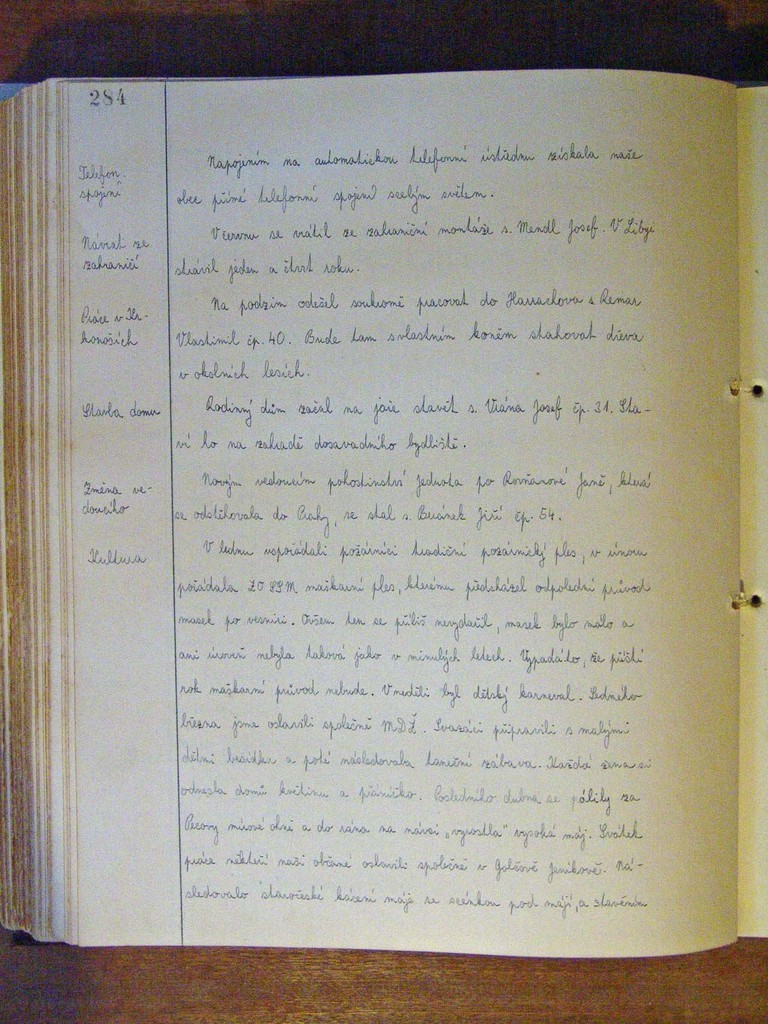 284
Telefon.
spojení
Napojením na automatickou telefonní ústřednu získala naše
obec přímé telefonní spojení scelým světem.
Návrat ze
zahraničí
V červnu se vrátil ze zahraniční montáže s. Mendl Josef. V Libyi
strávil jeden a čtvrt roku.
Práce v Kr-
konoších
Na podzim odešel soukromě pracovat do Harrachova s. Remar
Vlastimil čp. 40. Bude tam svlastním koněm stahovat dřeva
v okolních lesích.
Stavba domu
Rodinný dům začal na jaře stavět s. Vrána Josef čp. 31. Sta-
ví ho na zahradě dosavadního bydliště.
Změna ve-
doucího
Novým vedoucím pohostinství Jednota po Rovňanové Janě, která
se odstěhovala do Prahy, se stal s. Beránek Jiří čp. 54.
Kultura
V lednu uspořádali požárníci tradiční požárnický ples, v únoru
pořádala ZO SSM maškarní ples, kterému předcházel odpolední průvod
masek po vesnici. Ovšem ten se příliš nevydařil, masek bylo málo a
ani úroveň nebyla taková jako v minulých letech. Vypadá to, že příští
rok maškarní průvod nebude. V neděli byl dětský karneval. Sedmého
března jsme oslavili společně MDŽ. Svazáci připravili s malými
dětmi besídku a poté následovala taneční zábava. Každá žena si
odnesla domů květinu a přáníčko. Posledního dubna se pálily za
Pecovy mírové ohně a do rána na návsi „vyrostla" vysoká máj. Svátek
práce někteří naši občané oslavili společně v Golčově Jeníkově. Ná-
sledovalo staročeské kácení máje se scénkou pod májí, a stavěním